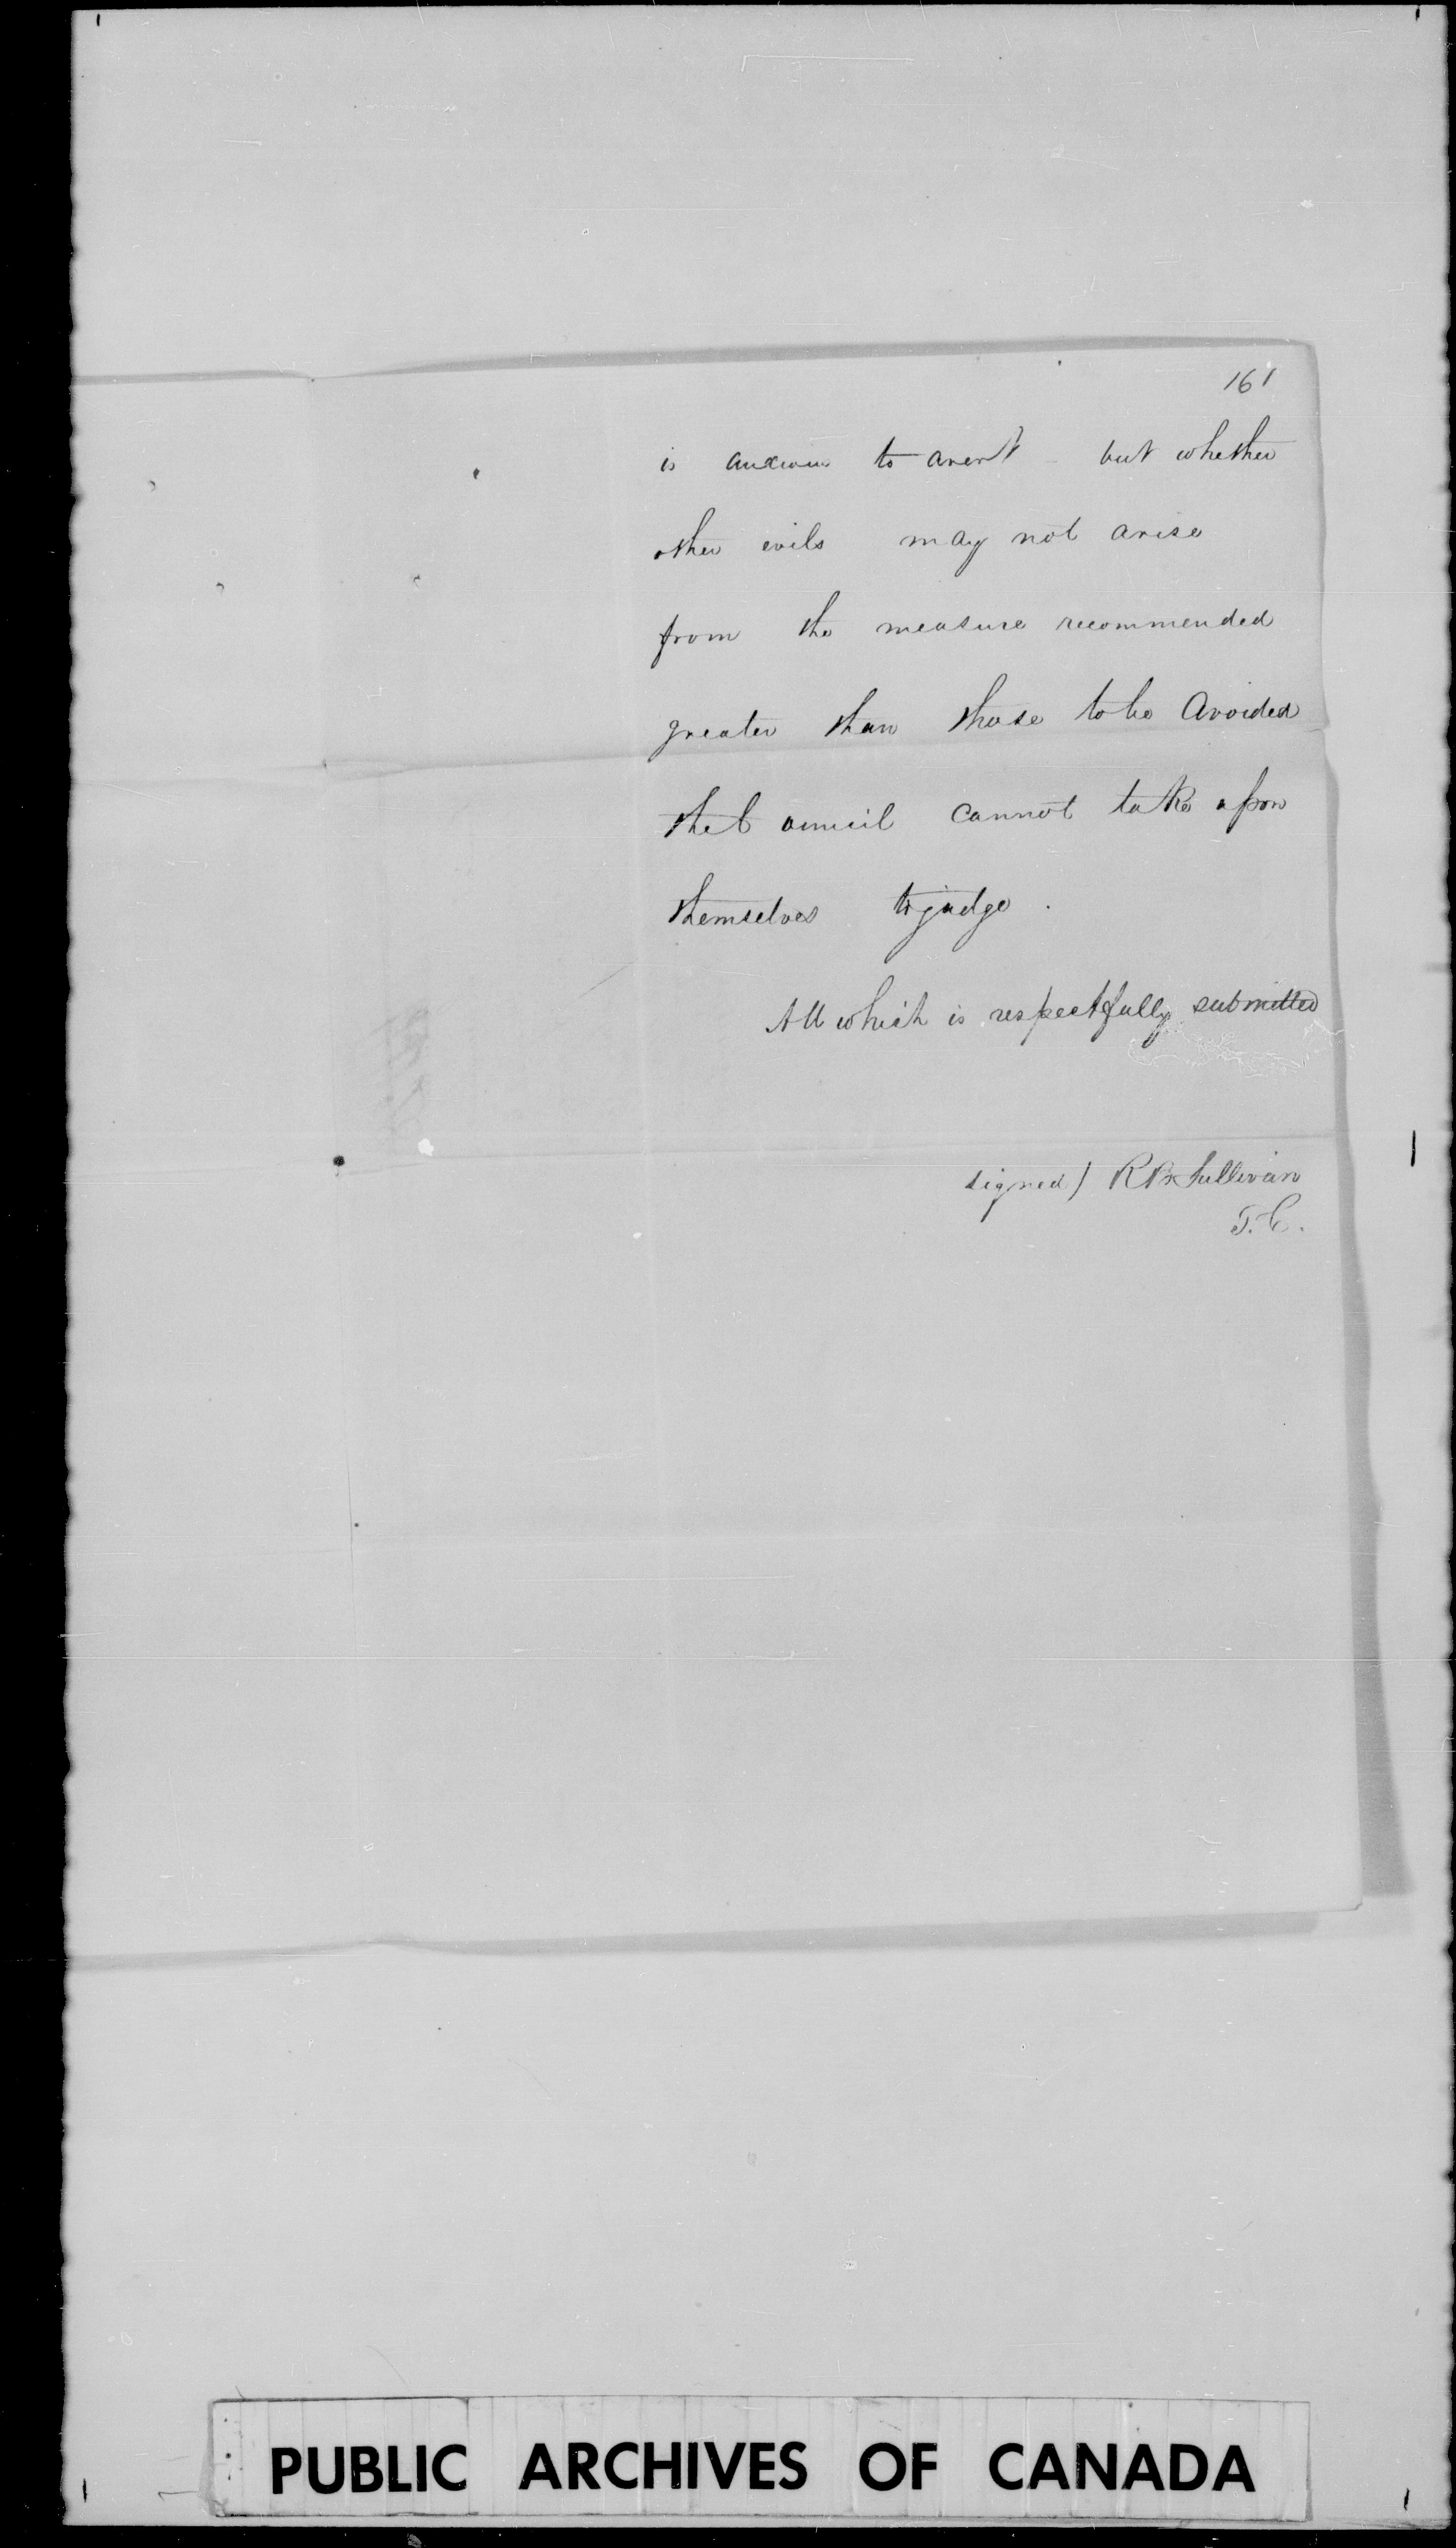 161
is anxious to avert - but whether
other evils may not arise
from the measure recommended
greater than those to be avoided
the Council cannot take upon
themselves to judge.
All which is respectfully submitted
signed) R B Sullivan
P. C.
PUBLIC ARCHIVES OF CANADA